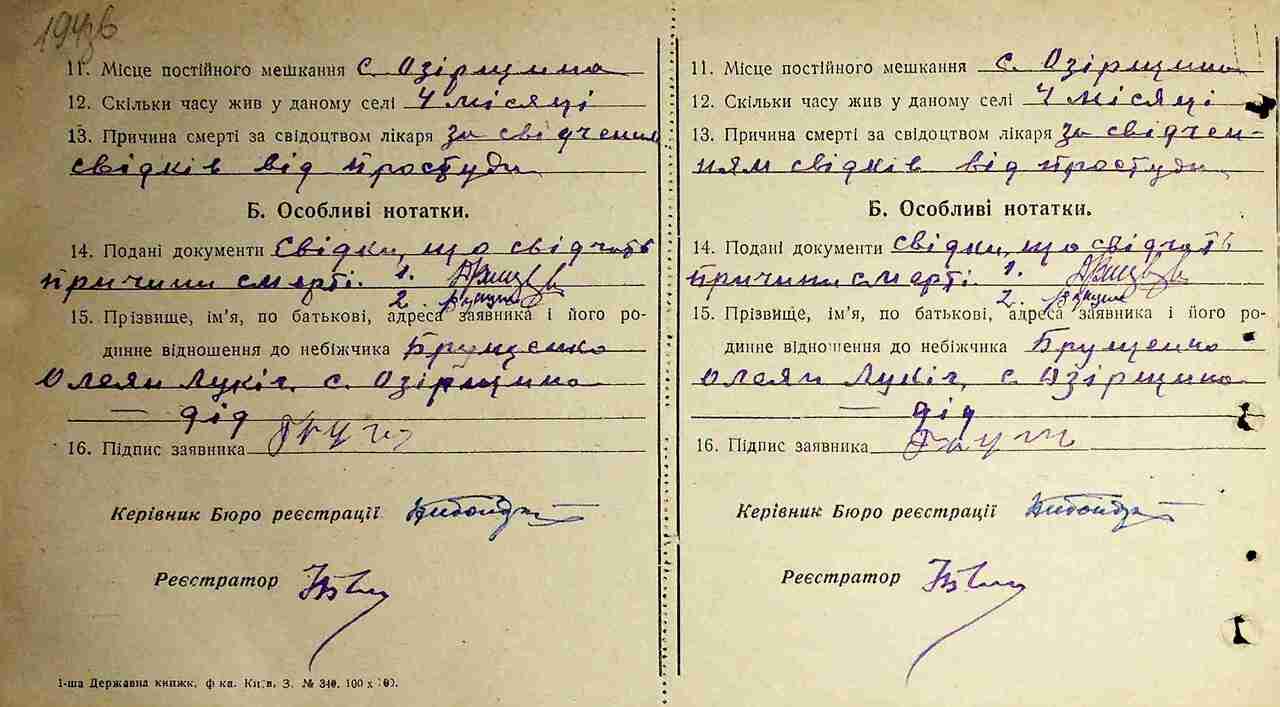 194зв
11. Місце постійного мешкання с. Озірщина
12. Скільки часу жив у даному селі 4 місяці
13. Причина смерті за свідоцтвом лікаря За свідченням
свідків від простуди
Б. Особливі нотатки.
14. Подані документи Свідки, що свідчать
причини смерті. 1.
2.
15. Прізвище, ім'я, по батькові, адреса заявника і його ро-
динне відношення до небіжчика Брущенко
Олеян Лукіч, с. Озірщина
— дід
16. Підпис заявника
Керівник Бюро реєстрації
Реєстратор
1-ша Державна книжк. ф-ка. Київ, З. № 340. 100 х 100.
11. Місце постійного мешкання с. Озірщина
12. Скільки часу жив у даному селі 4 місяці
13. Причина смерті за свідоцтвом лікаря За свідчен-
ням свідків від простуди
Б. Особливі нотатки.
14. Подані документи свідки, що свідчать
причини смерті. 1.
2.
15. Прізвище, ім'я, по батькові, адреса заявника і його ро-
динне відношення до небіжчика Брущенко
Олеян Лукіч, с. Озірщина
— дід
16. Підпис заявника
Керівник Бюро реєстрації
Реєстратор